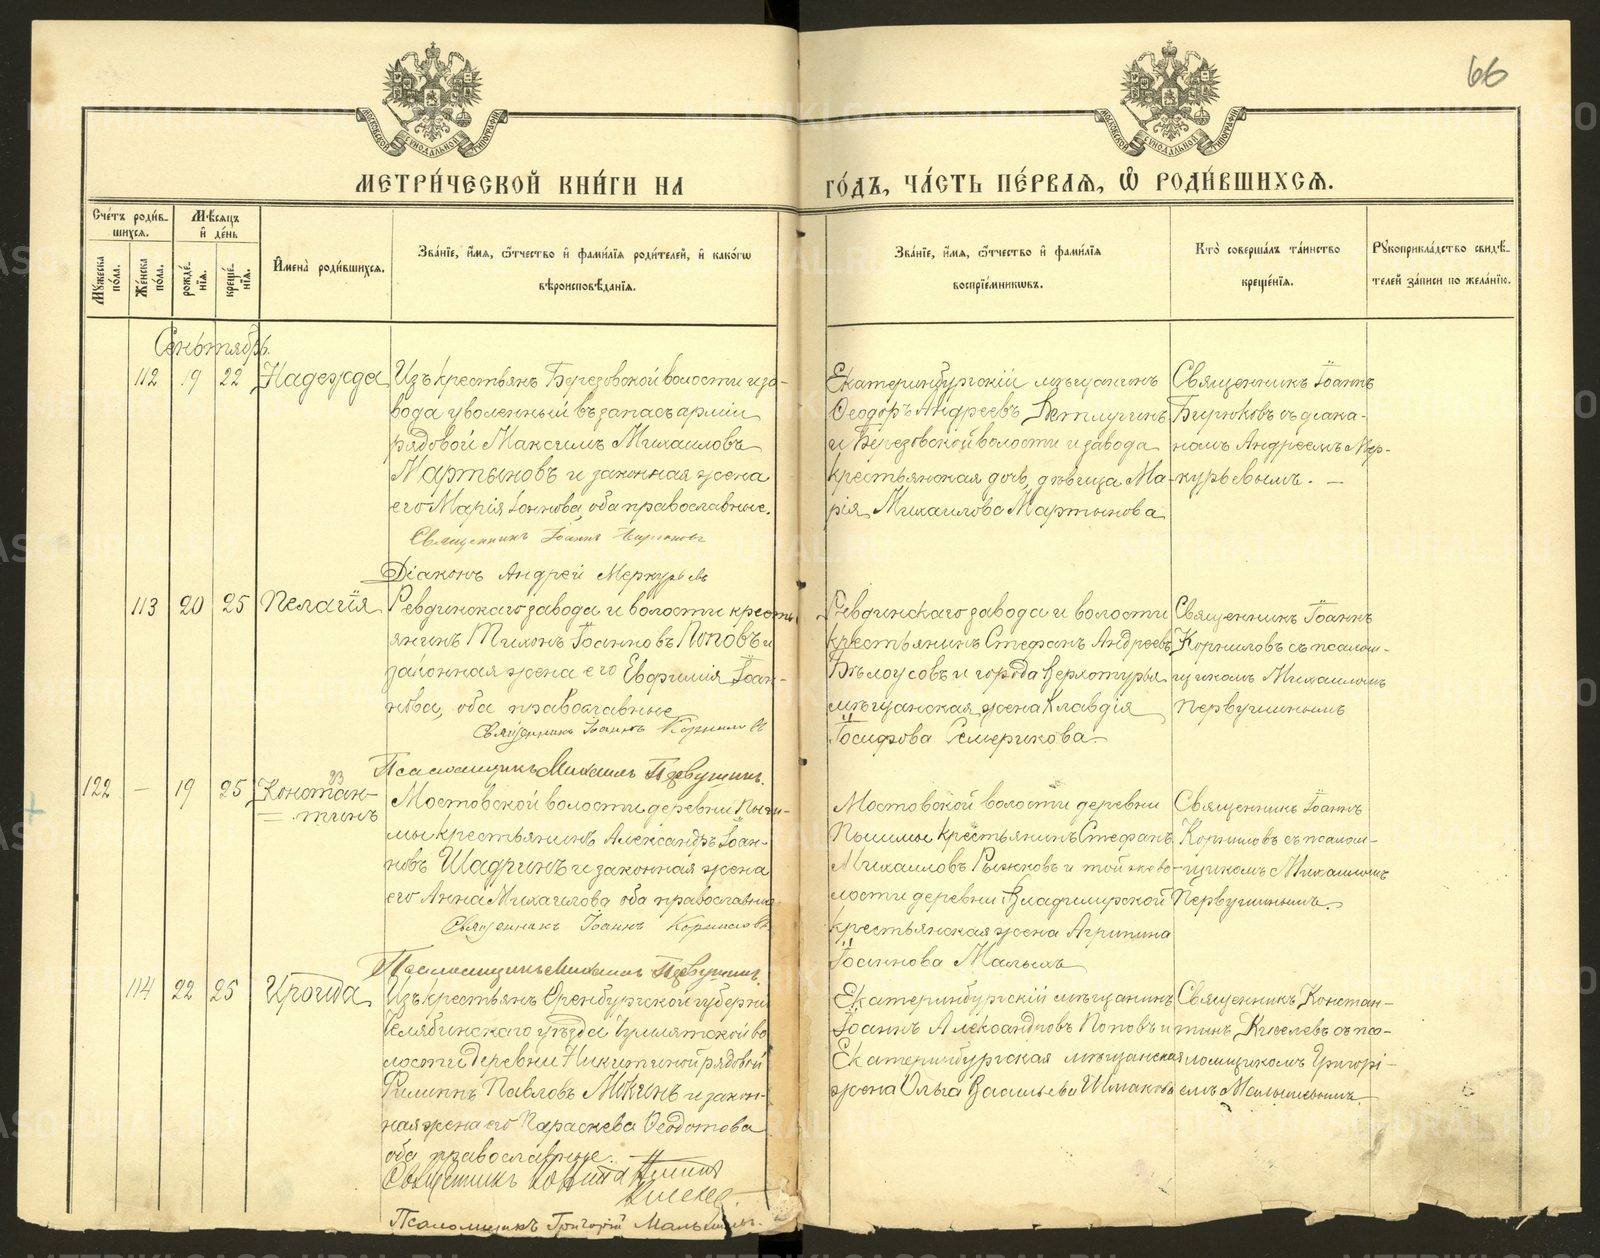 66
МОСКОВСКОЙ СѴНОДАЛЬНОЙ ТИПОГРАФІИ
МОСКОВСКОЙ СѴНОДАЛЬНОЙ ТИПОГРАФІИ
МЕТРИ́ЧЕСКОЙ КНИ́ГИ НА
ГО́ДЪ, ЧА́СТЬ ПЕ́РВАЯ, Ѿ РОДИ́ВШИХСЯ.
Сче́тъ роди́в-
шихся.
Мѣ́сяцъ
и́ де́нь
Му́жеска по́ла.
Же́нска по́ла.
рожде́нїя.
креще́нїя.
И́мена̀ роди́вшихся.
Зва́нїе, и́мя, ѻ҆́тчество и҆ фами́лїя роди́телей, и҆ како́гѡ
вѣроисповѣ́данїя.
Зва́нїе, и́мя, ѻ҆́тчество и҆ фами́лїя
воспрїе́мникѡвъ.
Кто̀ соверша́лъ та́инство
креще́нїя.
Рꙋкоприкла́дство свидѣ́-
телей за́писи по жела́нїю.
Сентябрь
112 19 22 Надежда
Изъ крестьянъ Березовской волости и за-
вода уволенный въ запасъ арміи
рядовой Максимъ Михаиловъ
Мартыновъ и законная жена
его Марія Іоннова, оба православные.
Священникъ Іоаннъ Бирюковъ
Діаконъ Андрей Меркурьевъ
Екатеринбургскій мѣщанинъ
Ѳеодоръ Андреевъ Ветлугинъ
и Березовской волости и завода
крестьянская дочь, дѣвица Ма-
рія Михаилова Мартынова
Священникъ Іоаннъ
Бирюковъ съ діако-
номъ Андреемъ Мер-
курьевымъ. —
113 20 25 Пелагія
Ревдинскаго завода и волости кресть-
янинъ Тихонъ Іоанновъ Поповъ и
законная жена его Евфимія Іоан-
нова, оба православные
Священникъ Іоаннъ Корниловъ
Псаломщикъ Михаилъ Первушинъ.
Ревдинскаго завода и волости
крестьянинъ Стефанъ Андреевъ
Бѣлоусовъ и города Верхотурья
мѣщанская жена Клавдія
Іосифова Семерикова
Священникъ Іоаннъ
Корниловъ съ псалом-
щикомъ Михаиломъ
Первушинымъ
122 — 19 25 Констан-
тинъ
Мостовской волости деревни Пыш-
мы крестьянинъ Александръ Іоан-
новъ Шадринъ и законная жена
его Анна Михаилова оба православные
Священникъ Іоаннъ Корниловъ
Псаломщикъ Михаилъ Первушинъ.
Мостовской волости деревни
Пышмы крестьянинъ Стефанъ
Михаиловъ Рыжковъ и той же во-
лости деревни Владимирской
крестьянская жена Агрипина
Іоаннова Малыхъ
Священникъ Іоаннъ
Корниловъ съ псалом-
щикомъ Михаиломъ
Первушинымъ.
114 22 25 Ираида
Изъ крестьянъ Оренбургской губерніи
Челябинскаго уѣзда Чумлятской во
лости деревни Никитиной рядовой
Филиппъ Павловъ Мокинъ и закон-
ная жена его Параскева Ѳеодотова
оба православные.
Священникъ Константинъ
Киселев.
Псаломщикъ Григорій Малышевъ.
Екатеринбургскій мѣщанинъ
Іоаннъ Александровъ Поповъ и
Екатеринбургская мѣщанская
жена Ольга Васильева Шмакова
Священникъ Констан-
тинъ Киселевъ съ пса-
ломщикомъ Григорі-
емъ Малышевымъ.